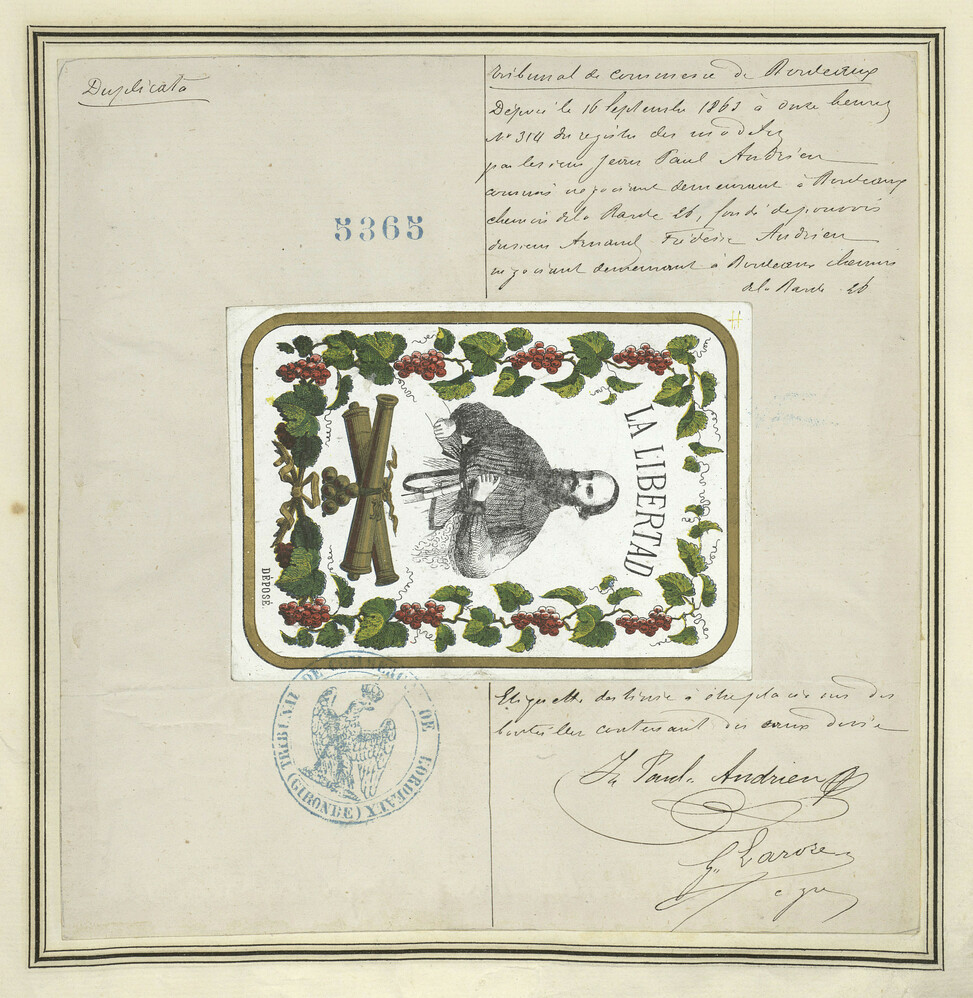 Duplicata
Tribunal de commerce de Bordeaux
Déposé le 16 Septembre 1863 à onze heures
N° 314 du registre des modèles
par le sieur Jean Paul Andrieu
commis négociant demeurant à Bordeaux
chemin de la 26, fondé de pouvoirs
du sieur Arnaud Frédéric Andrieu
négociant demeurant à Bordeaux chemin
de la 26
5365
LA LIBERTAD
DÉPOSÉ.
TRIBUNAL DE COMMERCE DE BORDEAUX
(GIRONDE)
Etiquette destinée à être placée sur des
bouteilles contenant des
Jn Paul Andrieu